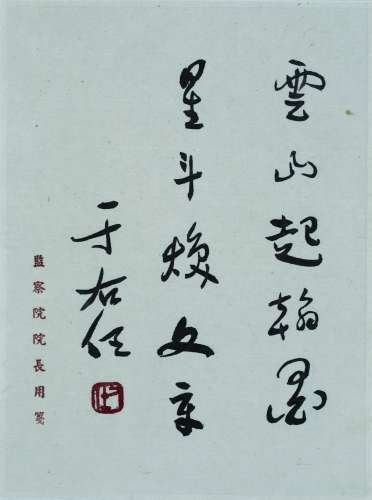 雲山起翰墨
星斗煥文章
于右任
監察院院長用箋